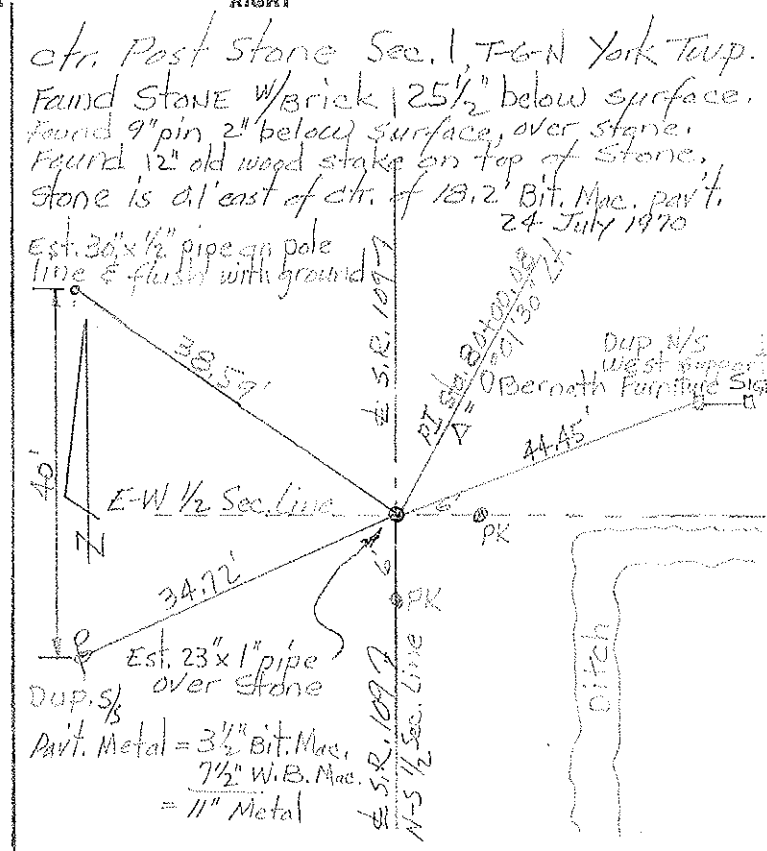 RIGHT
Ctr. Post Stone Sec. 1, T-6-N York Twp.
Found STONE W/Brick 25½" below surface.
Found 9" pin 2" below surface, over stone.
Found 12" old wood stake on top of Stone.
Stone is 0.1' east of ctr. of 18.2' Bit. Mac. pav't.
24 July 1970
Est. 30" x ½" pipe on pole
line & flush with ground
38.59'
℄ S.R. 109
PI Sta. 80+00.08
Δ= 0°01'30"
Dup. N/S
West support
Bernath Furniture Sign
44.45'
40'
E-W ½ Sec. Line
6'
PK
N
34.72'
6'
PK
P
Est. 23" x 1" pipe
over Stone
Dup. S/S
Pav't. Metal = 3½" Bit. Mac.
7½" W.B. Mac.
= 11" Metal
℄ S.R. 109
N-S ½ Sec. Line
Ditch